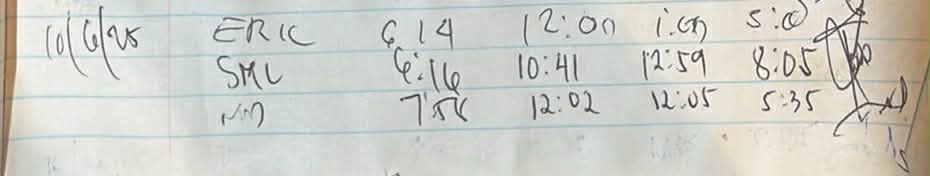 10/6/25 ERIC 6 14 12:00 1:00 5:00
SML 6:16 10:41 12:59 8:05
12:02 12:05 5:35